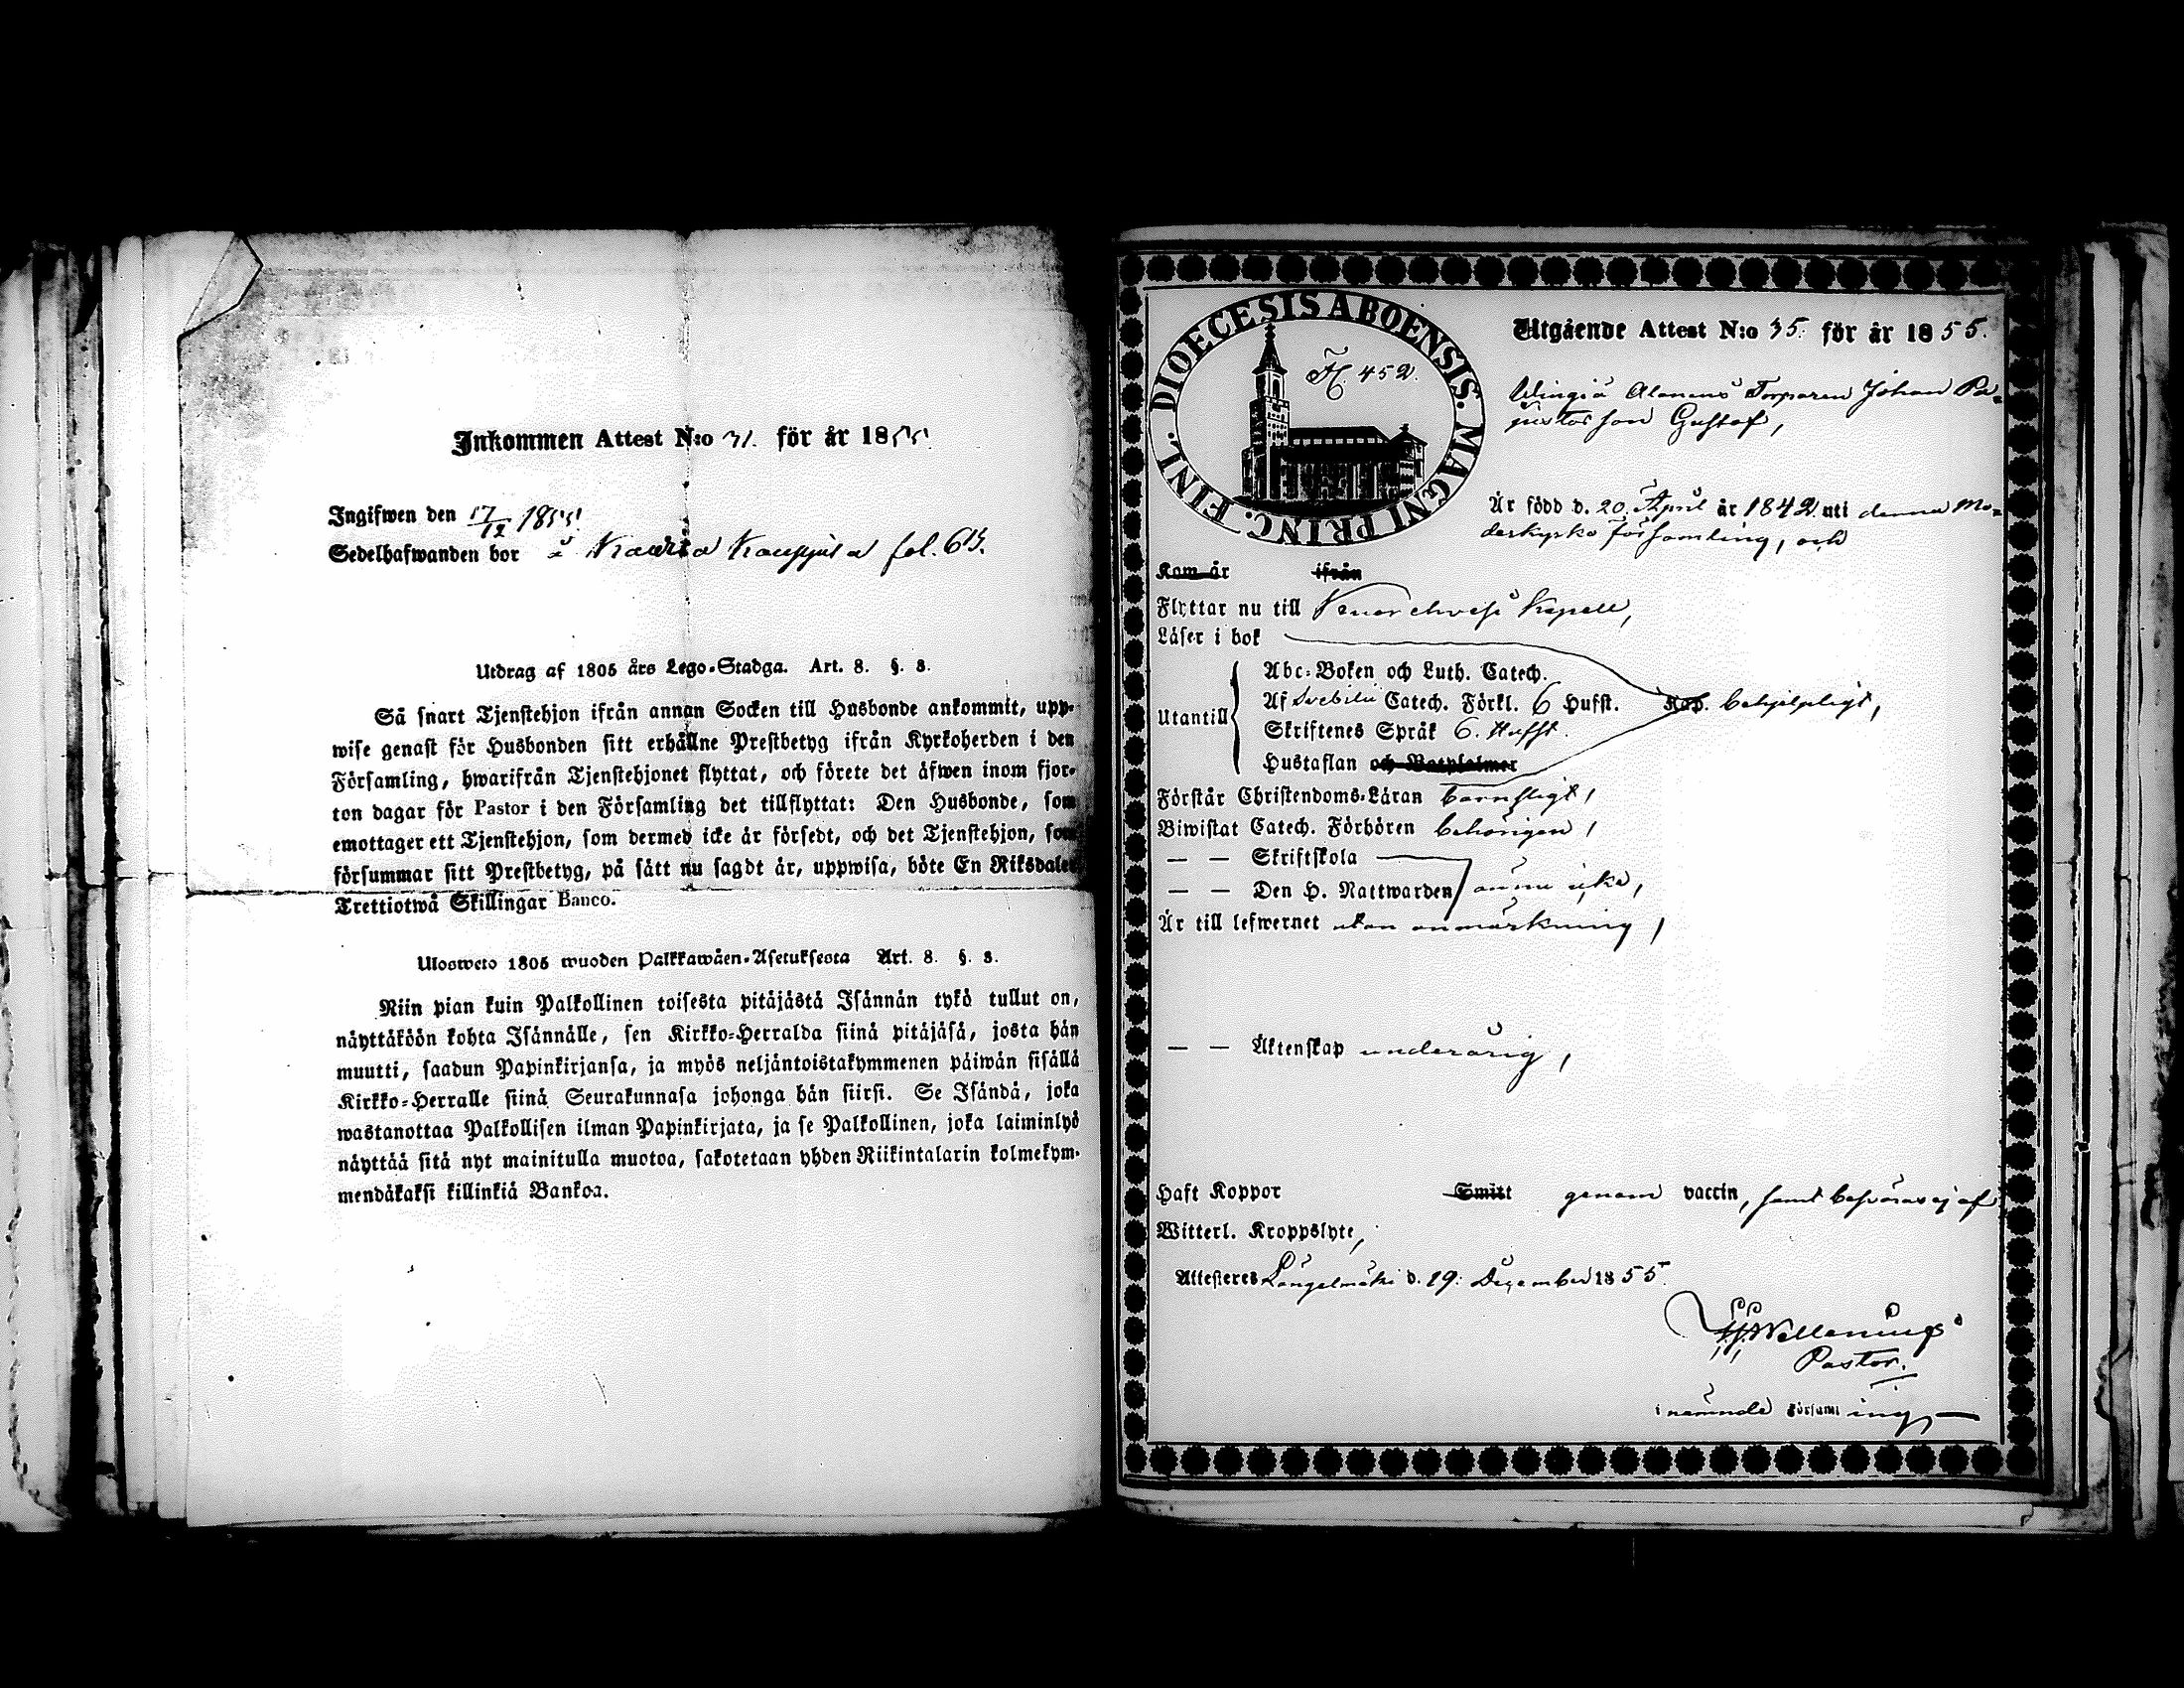 Inkommen Attest N:o 31. för år 1855
Ingifwen den 17/12 1855
Sedelhafwanden bor å Kauppila fol. 63.
Utdrag af 1805 års Lego-Stadga. Art. 8. §. 8.
Så snart Tjenstehjon ifrån annan Socken till Husbonde ankommit, upp-
wise genast för Husbonden sitt erhållne Prestbetyg ifrån Kyrkoherden i den
Församling, hwarifrån Tjenstehjonet flyttat, och förete det äfwen inom fjor-
ton dagar för Pastor i den Församling det tillflyttat: Den Husbonde, som
emottager ett Tjenstehjon, som dermed icke är försedt, och det Tjenstehjon, som
försummar sitt Prestbetyg, på sätt nu sagdt är, uppwisa, böte En Riksdaler
Trettiotwå Skillingar Banco.
Ulosweto 1805 wuoden Palkkawäen-Asetuksesta Art. 8. §. 8.
Niin pian kuin Palkollinen toisesta pitäjästä Isännän tykö tullut on,
näyttäköön kohta Isännälle, sen Kirkko-Herralda siinä pitäjäsä, josta hän
muutti, saadun Papinkirjansa, ja myös neljäntoistakymmenen päiwän sisällä
Kirkko-Herralle siinä Seurakunnasa johonga hän siirsi. Se Isändä, joka
wastanottaa Palkollisen ilman Papinkirjata, ja se Palkollinen, joka laiminlyö
näyttää sitä nyt mainitulla muotoa, sakotetaan yhden Riikintalarin kolmekym-
mendäkaksi killinkiä Bankoa.
DIOECESIS ABOENSIS. MAGNI PRINC. FINL.
H. 452.
Utgående Attest N:o 35. för år 1855.
Wingiä Alanens Torparen Johan
son Gustaf,
Är född d. 20. April år 1842 uti denna Mo-
derkyrko församling, och
Kom år ifrån
Flyttar nu till Kapell,
Läser i bok
Abc-Boken och Luth. Catech.
Utantill Af Svebilii Catech. Förkl. 6 Hufst. Kap. behjelpligt,
Skriftenes Språk 6. Hufst.
Hustaflan och Botpsalmer
Förstår Christendoms-Läran barnsligt,
Biwistat Catech. Förhören behörigen,
— — Skriftskola
— — Den H. Nattwarden ännu icke,
Är till lefwernet utan anmärkning,
— — Äktenskap underårig,
Haft Koppor Smitt genom vaccin, samt besväras ej af
Witterl. Kroppslyte,
Attesteres Längelmäki d. 19. December 1855.
Pastor.
i nämnde Församling